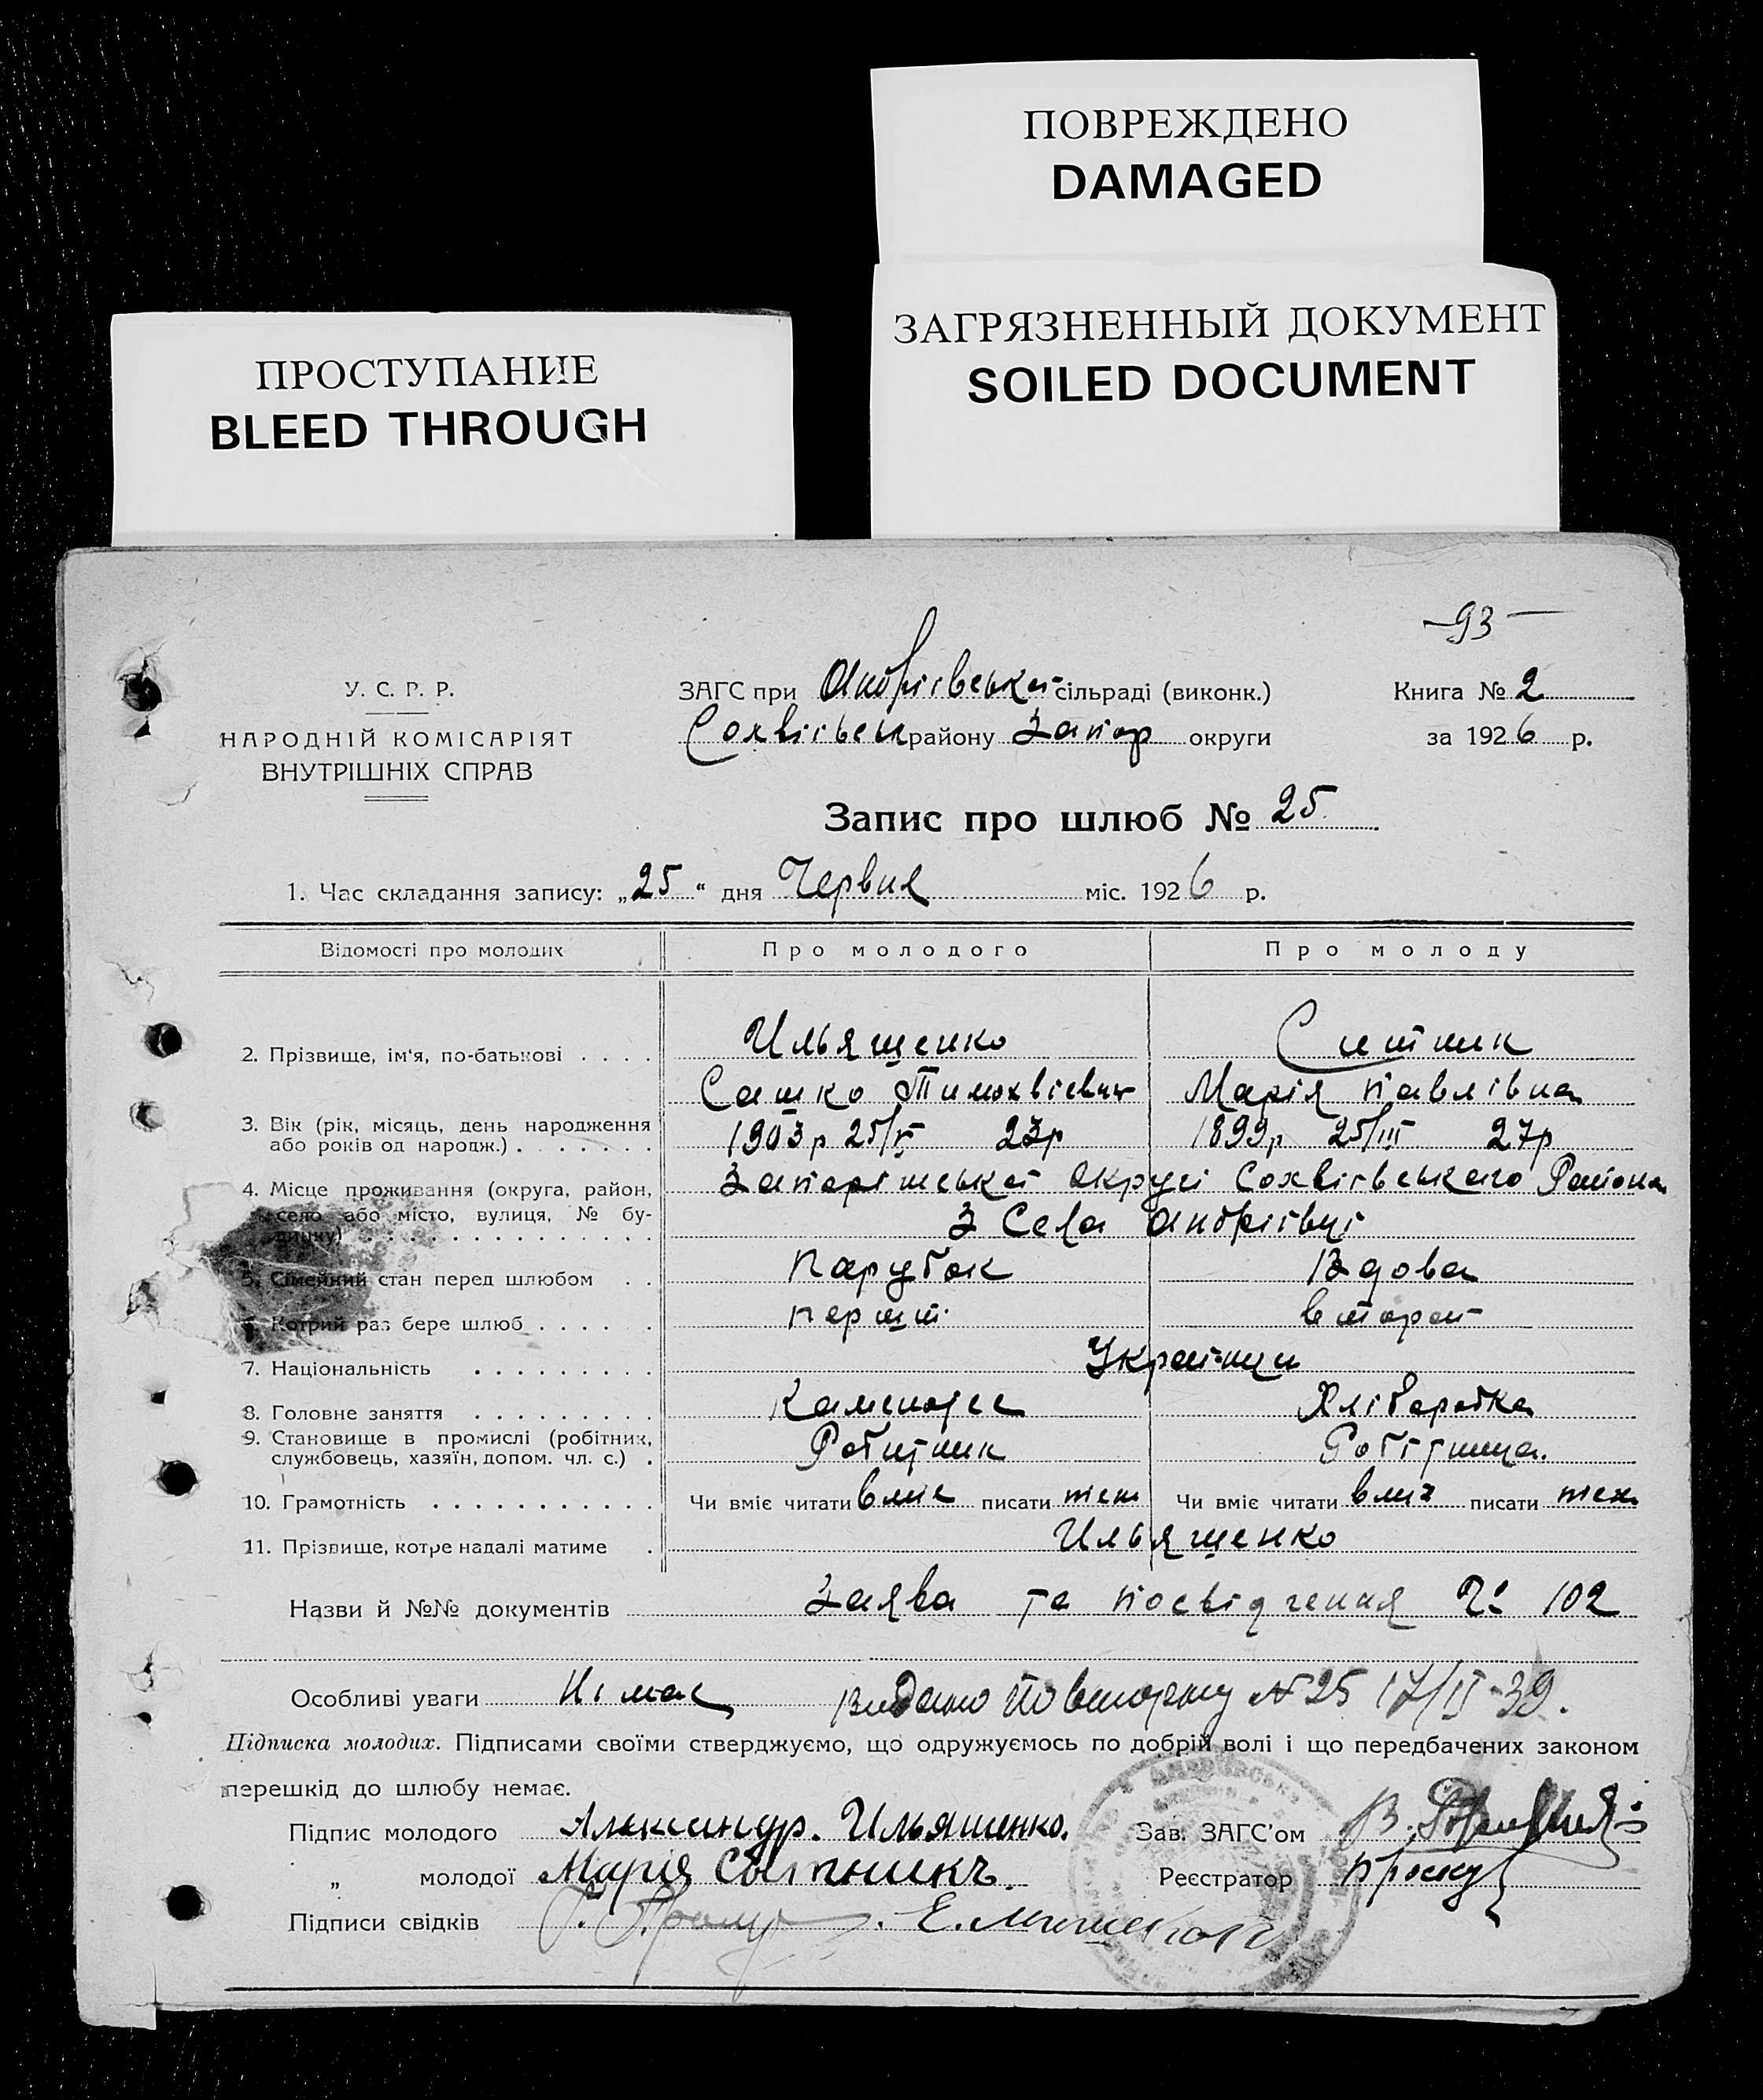 ПОВРЕЖДЕНО
DAMAGED
ЗАГРЯЗНЕННЫЙ ДОКУМЕНТ
SOILED DOCUMENT
ПРОСТУПАНИЕ
BLEED THROUGH
-93-
У. С. Р. Р.
НАРОДНІЙ КОМІСАРІЯТ
ВНУТРІШНІХ СПРАВ
ЗАГС при Андріівській сільраді (виконк.)
Сохвіівськ району Запор округи
Книга № 2
за 1926 р.
Запис про шлюб № 25
1. Час складання запису: „25“ дня Червня міс. 1926 р.
Відомості про молодих Про молодого Про молоду
2. Прізвище, ім'я, по-батькові . . . . Ильященко Ситник
Сашко Тимохвієвич Марія Павлівна
3. Вік (рік, місяць, день народження
або років од народж.) . . . . . . . 1903р 25/V 23р 1899р 25/III 27р
4. Місце проживання (округа, район,
село або місто, вулиця, № бу-
динку) . . . . . . . . . . . . . . .
Запоріжської округі Сохвіівського Района
З Села Андріівці
5. Сімейний стан перед шлюбом . . Парубок Вдова
6. Котрий раз бере шлюб . . . . . перший второй
7. Національність . . . . . . . . . Українци
8. Головне заняття . . . . . . . . . Хліборобка
9. Становище в промислі (робітник,
службовець, хазяїн, допом. чл. с.) . Робитник Робітниця.
10. Грамотність . . . . . . . . . . . Чи вміє читати вміє писати теж Чи вміє читати вміє писати теж
11. Прізвище, котре надалі матиме . Ильященко
Назви й №№ документів Заява та посвідчення № 102
Особливі уваги Німає Видано Повторну №25 17/II-39.
Підписка молодих. Підписами своїми стверджуємо, що одружуємось по добрій волі і що передбачених законом
перешкід до шлюбу немає.
Підпис молодого Александр. Ильяшенко. Зав. ЗАГС'ом
„ молодої Марія Сытникъ. Реєстратор
Підписи свідків